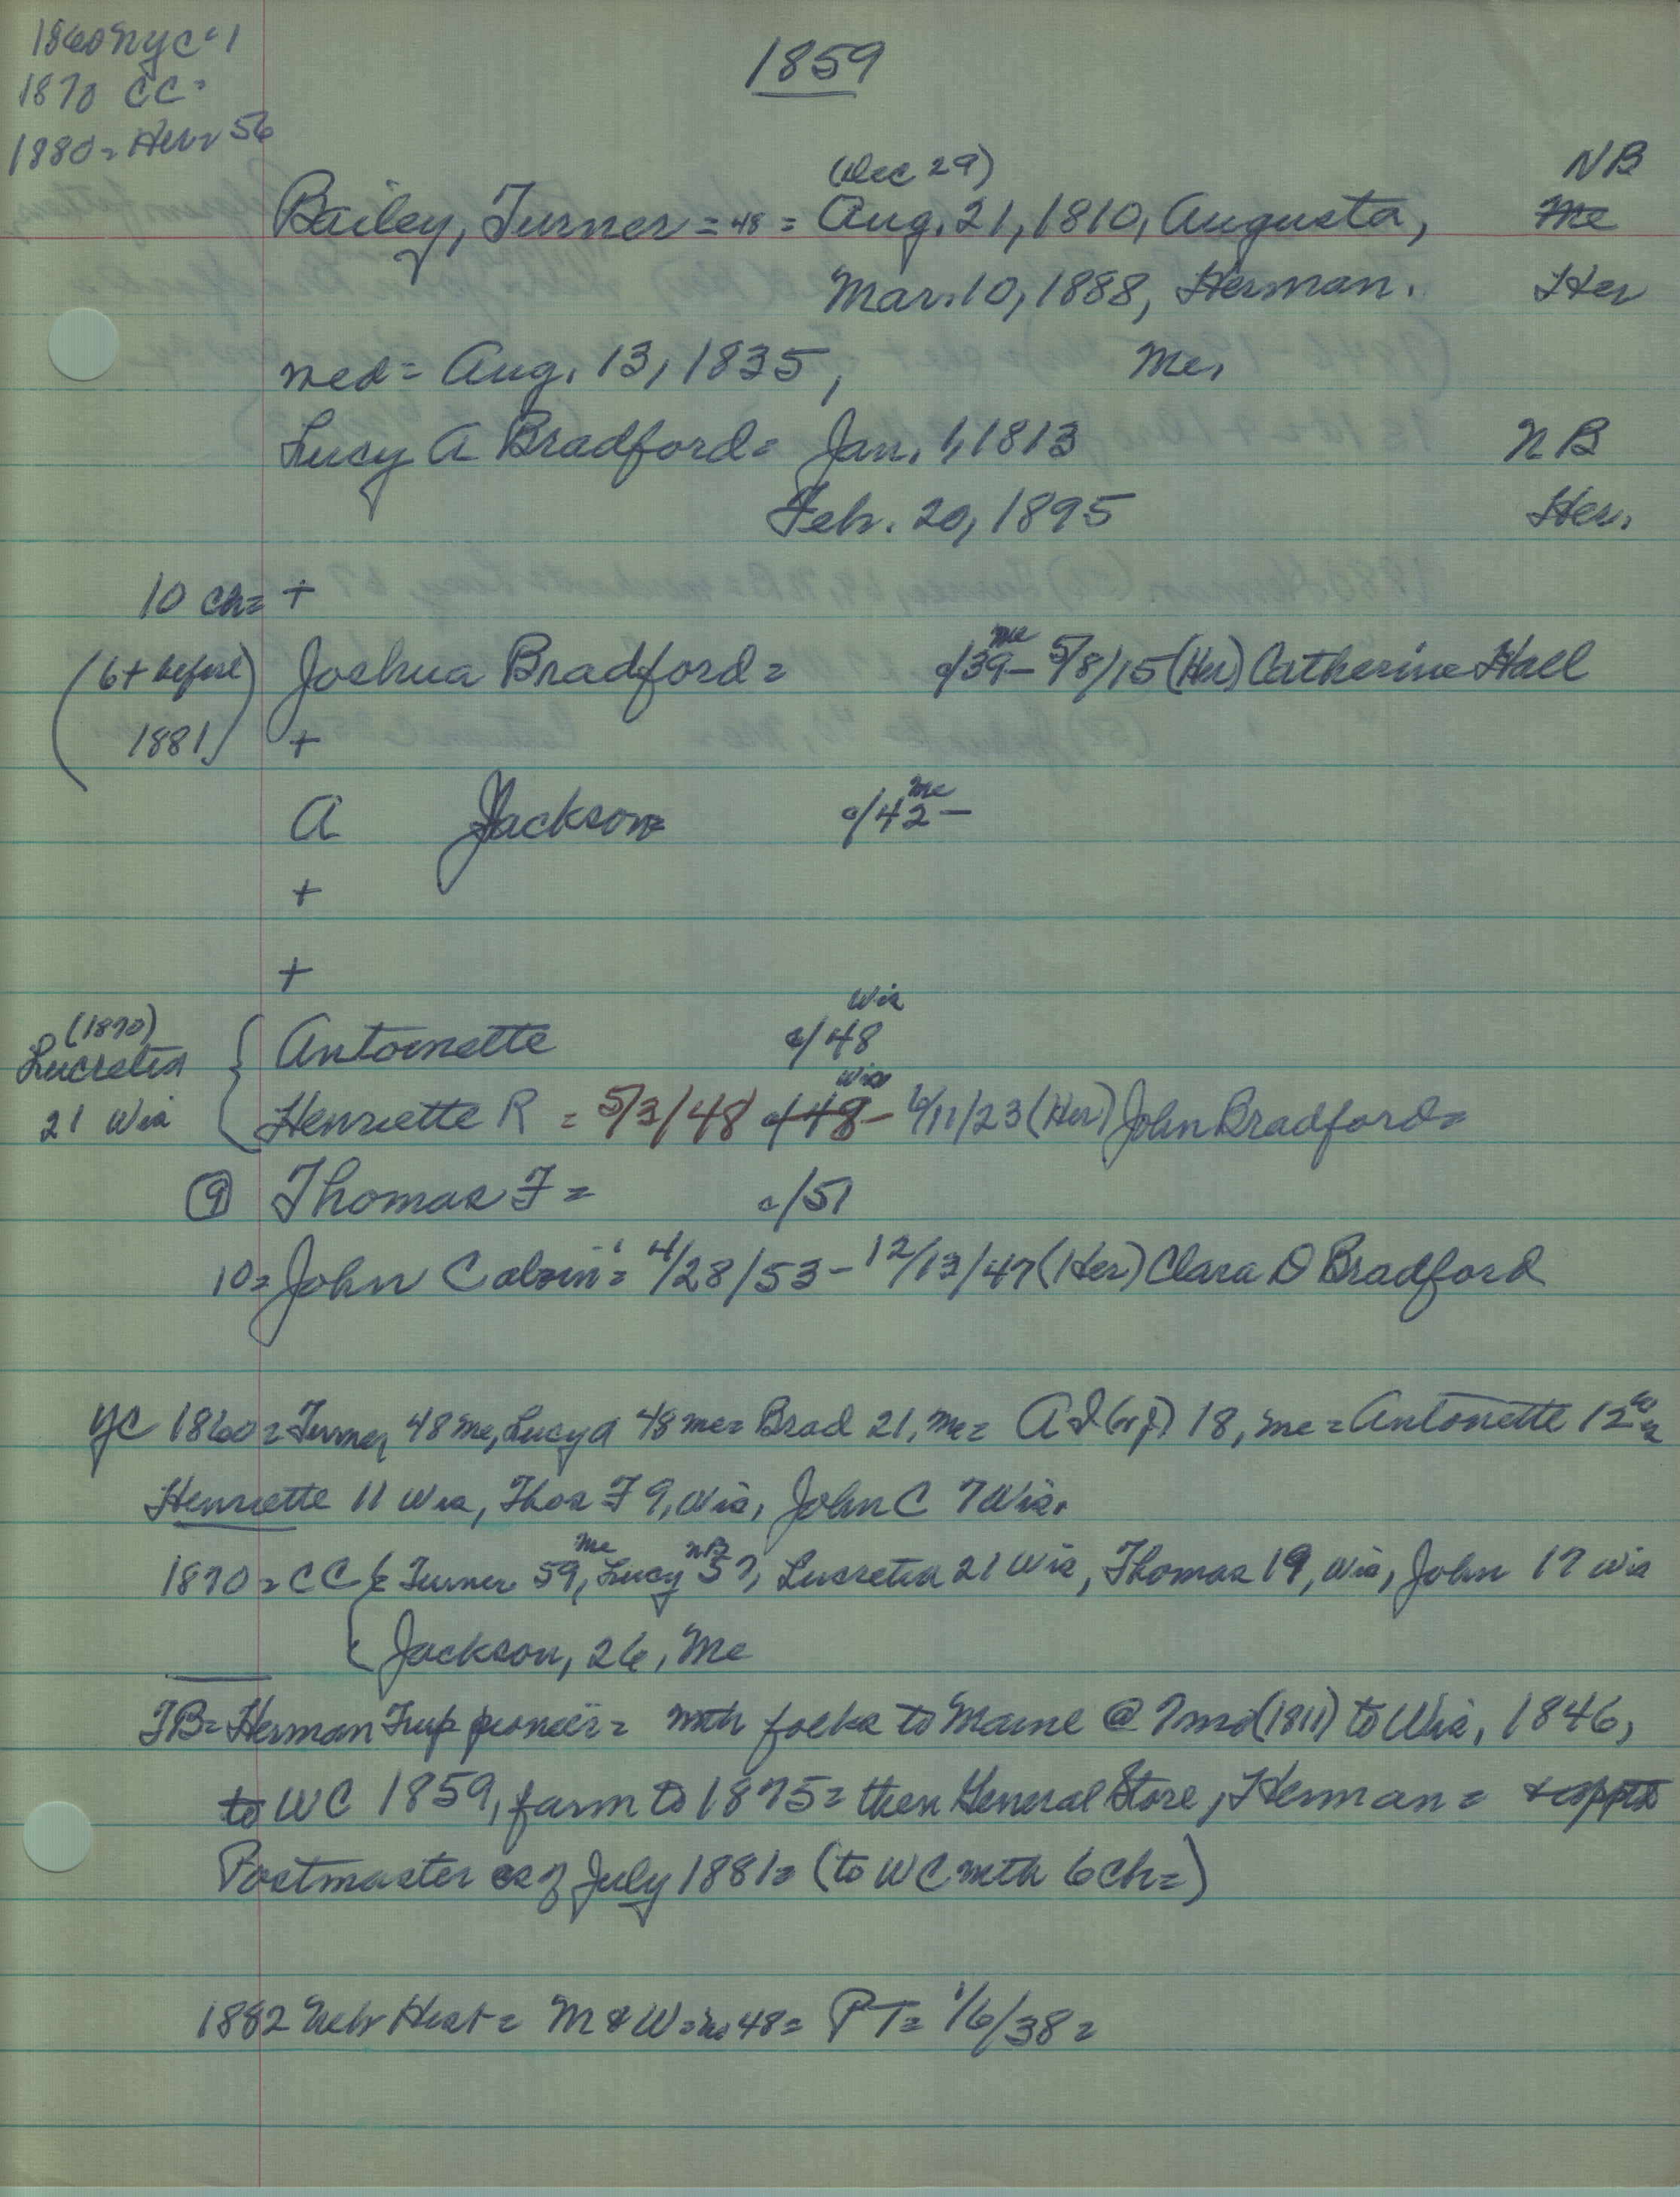 1860 NYC=1
1870 CC=
1880= Her= 56
1859
(Dec 29) NB
Bailey, Turner = 48 = Aug. 21, 1810, Augusta, Me
Mar. 10, 1888, Herman. Her
med= Aug. 13, 1835, Me,
Lucy A Bradford= Jan. 1, 1813 NB
Feb. 20, 1895 Her.
10 ch= +
(6+ before) Joshua Bradford= c/39 Me – 5/8/15 (Her) Catherine Hall
1881 +
A Jackson= c/42 Me –
+
+
(1870) Wis
Lucretia { Antoinette c/48
21 Wis Henriette R = 5/3/48 c/49 Wis – 6/11/23 (Her) John Bradford=
⑨ Thomas F = c/51
10= John Calvin = 4/28/53 – 12/13/47 (Her) Clara D Bradford
YC 1860= Turner 48 Me, Lucy A 48 Me= Brad 21, Me= A I (or J) 18, Me = Antonette 12 Wis
Henriette 11 Wis, Thos F 9, Wis, John C 7 Wis.
1870= CC { Turner 59, Me Lucy 57, NB Lucretia 21 Wis, Thomas 19, Wis, John 17 Wis
Jackson, 26, Me
TB= Herman Twp pioneer= with folks to Maine @ 7 mo (1811) to Wis, 1846,
to WC 1859, farm to 1875= then General Store, Herman= + appts
Postmaster as of July 1881= (to WC with 6 ch=)
1882 Neb Hist= M & W= no 48= PT= 1/6/38=